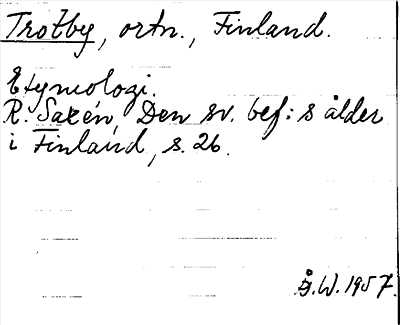 Trotby, ortn., Finland.
Etymologi.
R. Saxén, Den sv. bef:s ålder
i Finland, s. 26.
Å.W. 1957.